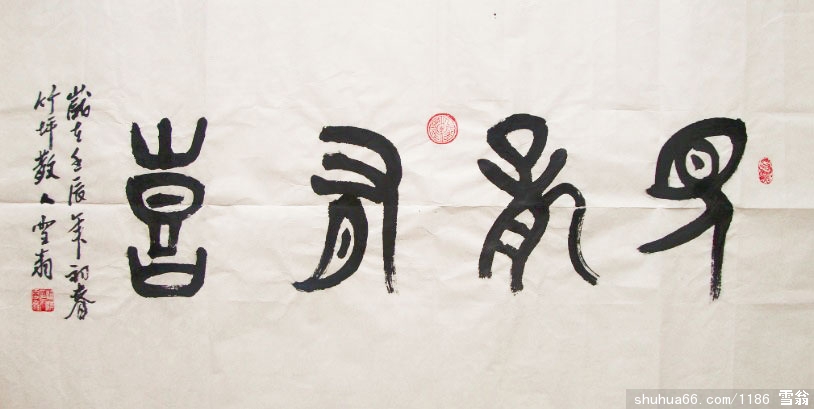 見龍有喜
歲在壬辰年初春
竹坪散人雪翁
shuhua66.com/1186 雪翁